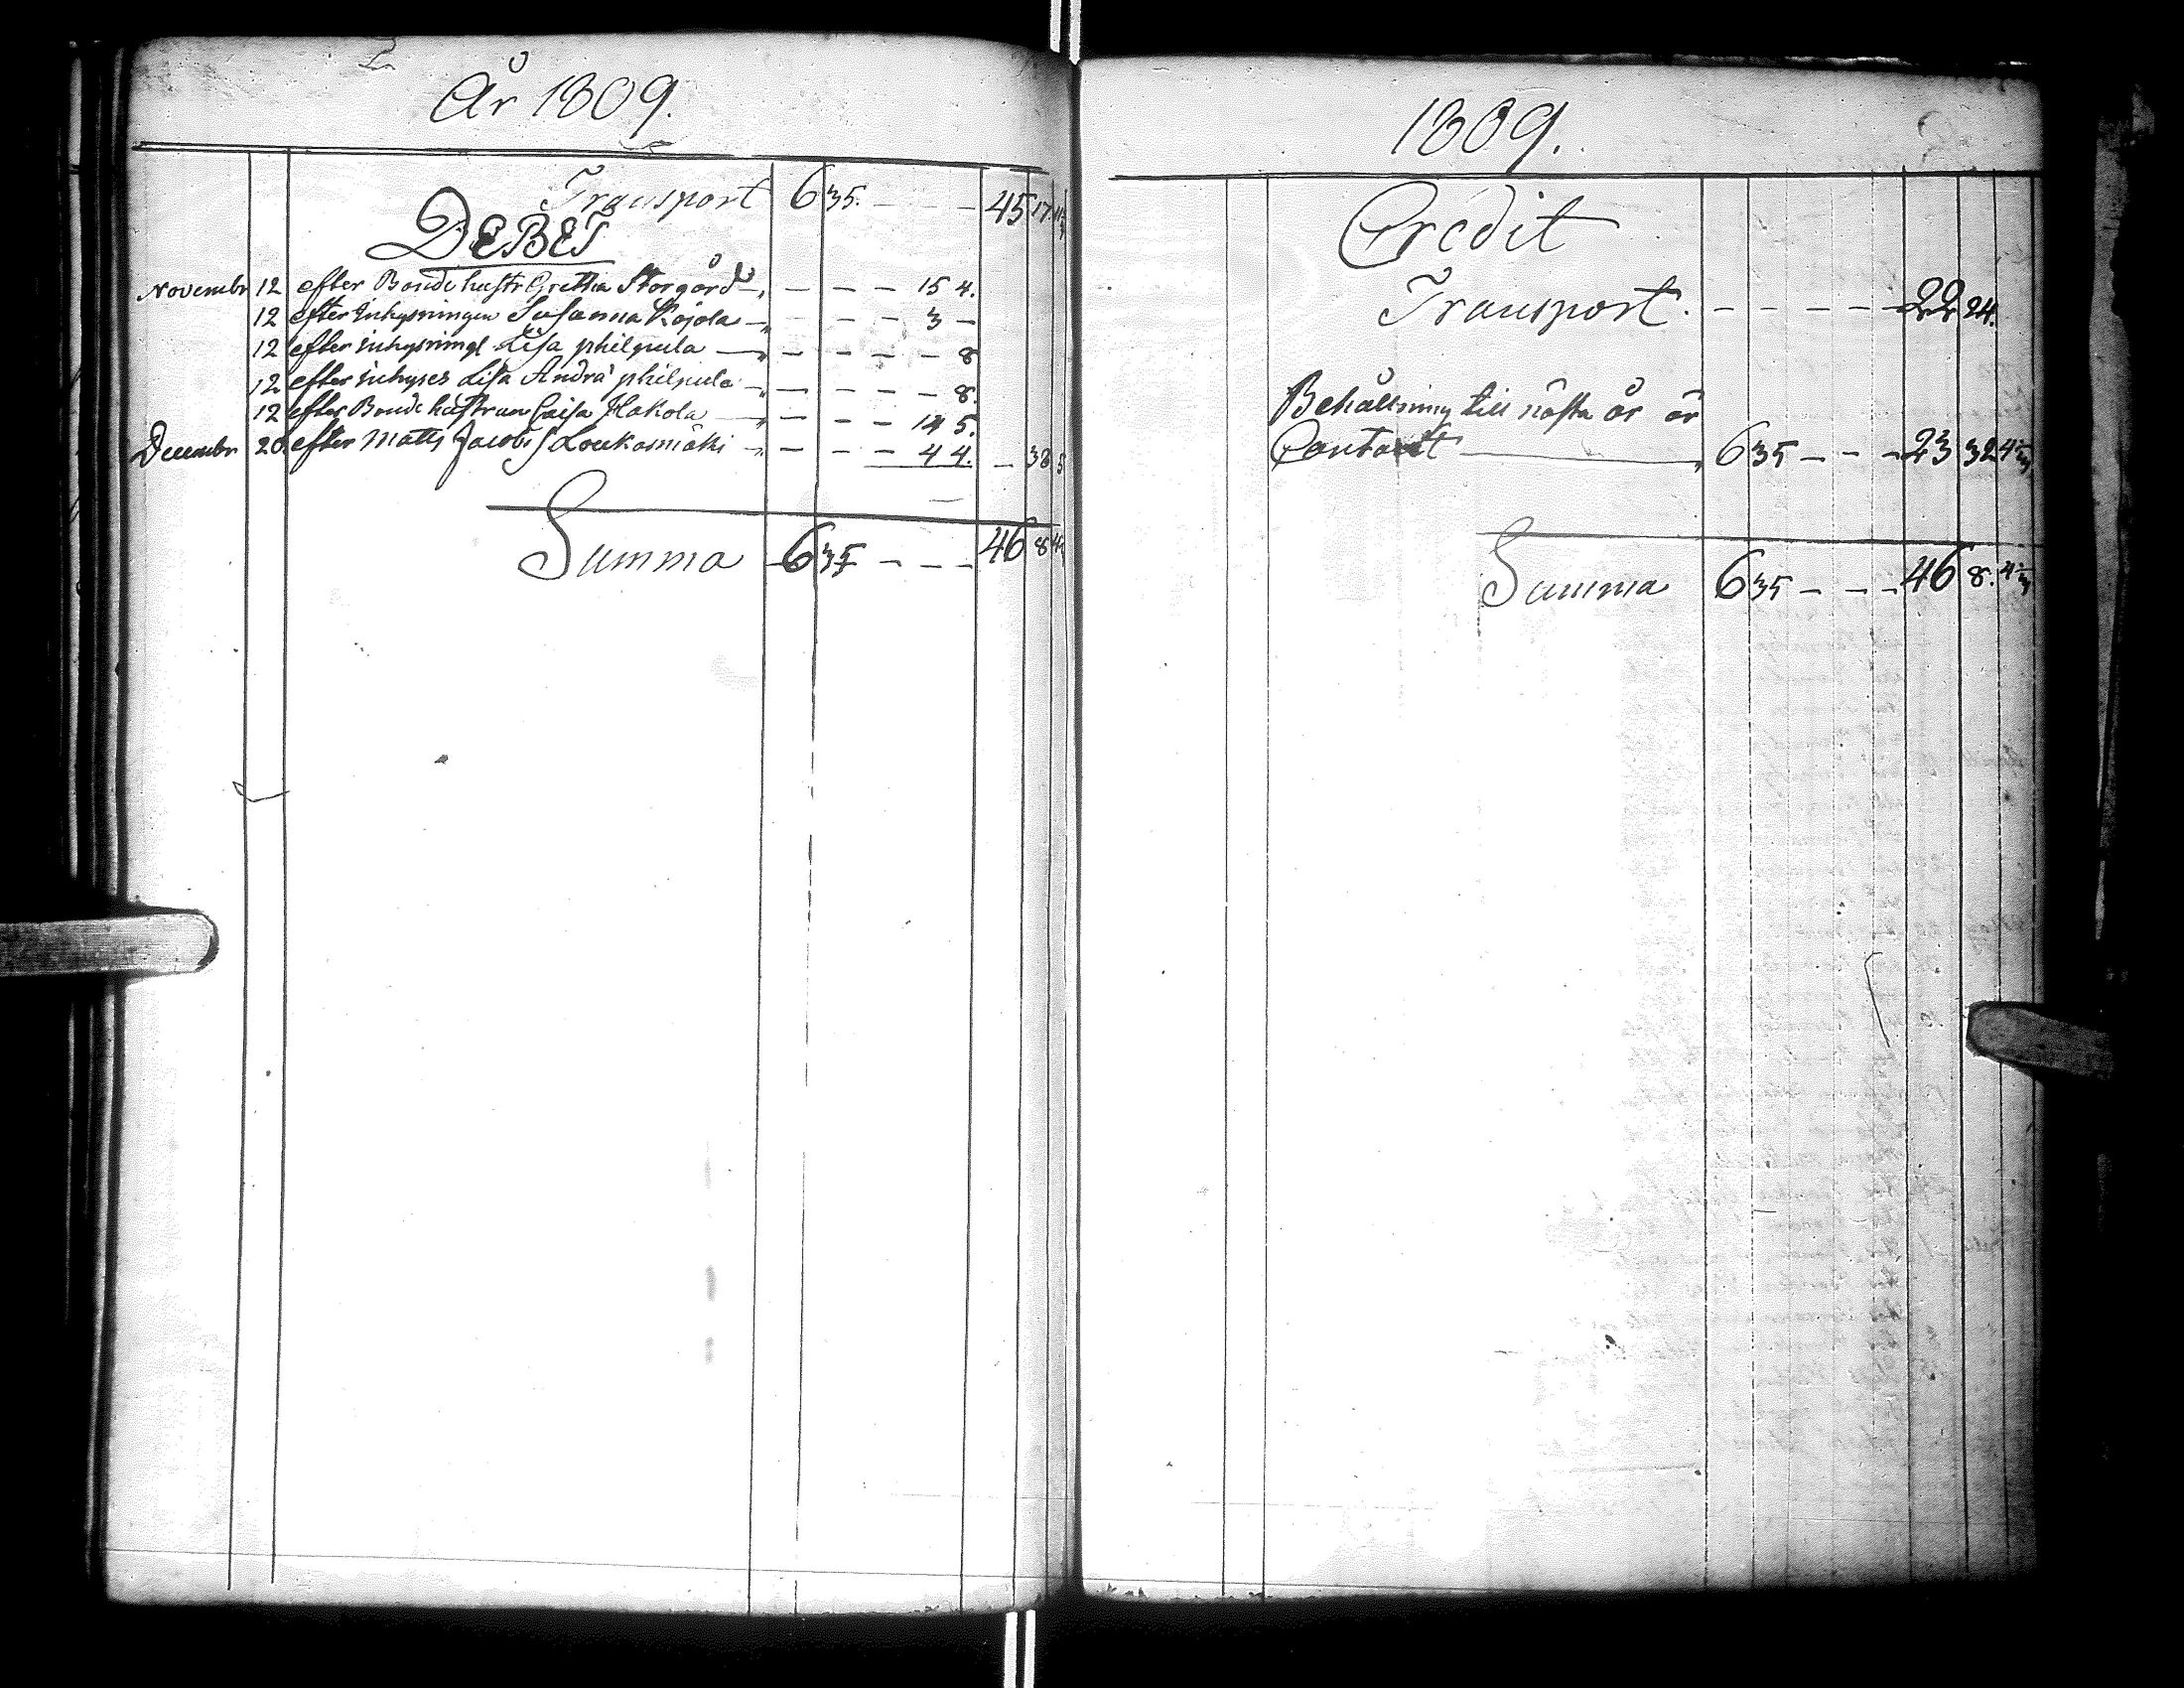 År 1809.
Transport 6 35. - - - 45 17
DEBET
Novembr 12 efter Bonde hustr Gretha Storgård - - - - 15 4.
12 efter Inhysningen Susanna Kojola - - - - 3 -
12 efter inhysningl Lisa philpula - - - - 8
12 efter inhyses Lisa Andrä philpula - - - - 8.
12 efter Bonde hustrun Caisa Hakola - - - 14 5.
Decembr 20. efter Matts Jacobs S Loukasmäki - - - 4 4. - 38 5
Summa 6 35 - - - 46 8
1809.
Credit
Transport. - - - - - 22 24.
Behållning till nästa år är
Contant 6 35 - - - 23 32 4 1/3
Summa 6 35 - - - 46 8. 4 1/3